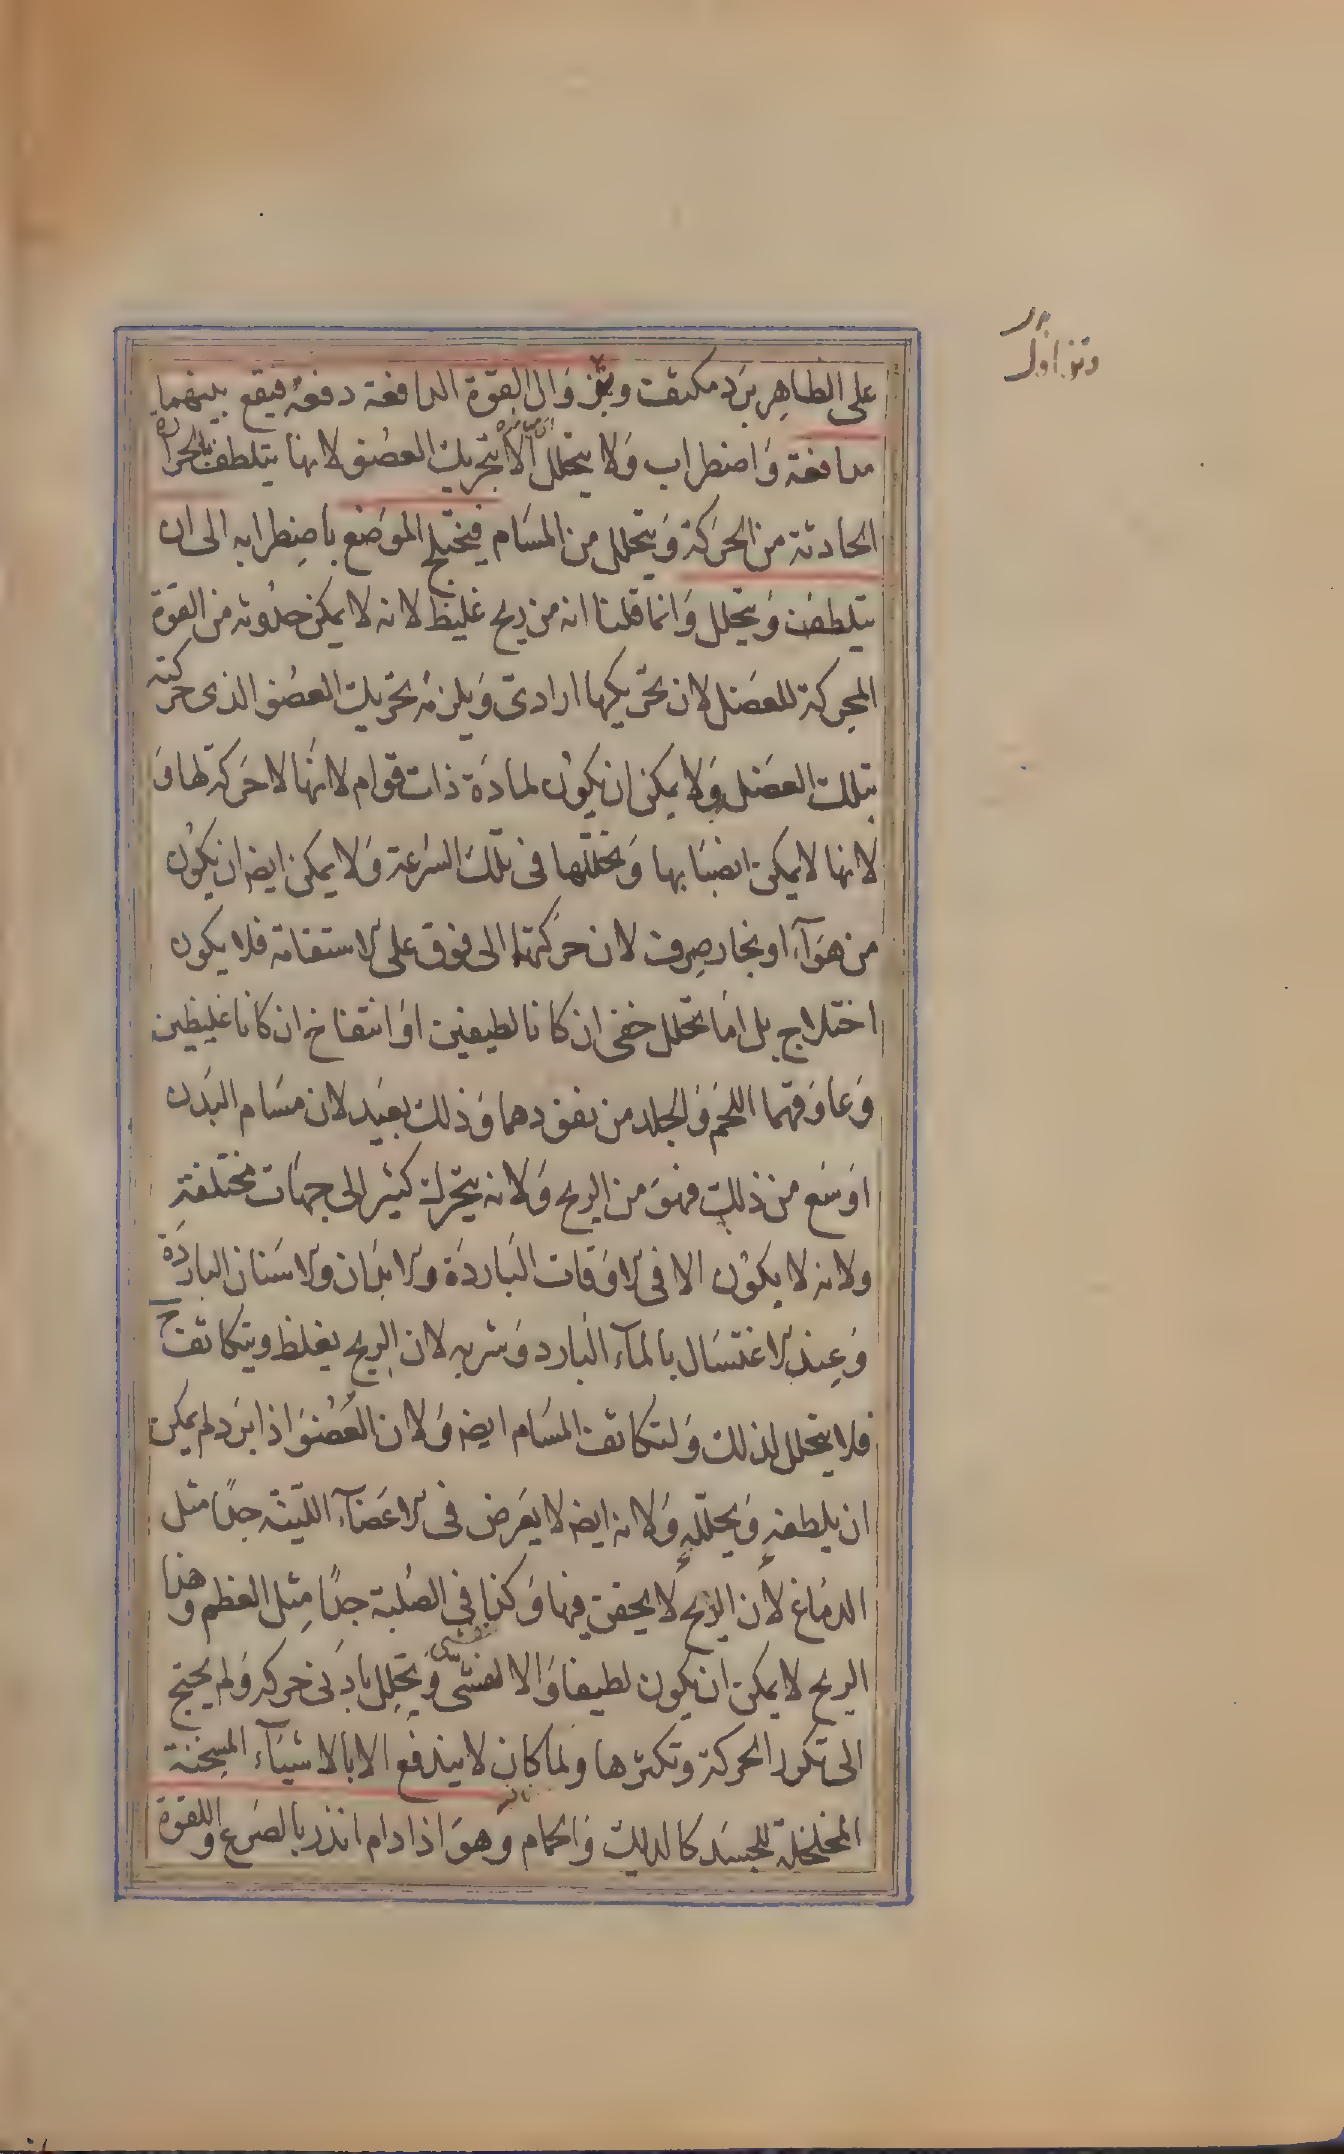 على الظاهر برد مكثف وتحز وال القوة الدافعة دفعه فيقع بينهما
مدافعة واضطراب ولا يتحلل الا بتحريك العضو لانها يتلطف بالحرارة
الحادثة من الحركة ويتحلل من المسام فيختلج الموضع باضطرابه الى ان
يتلطف ويتحلل وانما قلنا انه من ريح غليظ لانه لا يمكن حدوثه من القوة
المحركة للعضل لان تحريكها ارادى ويلزمه تحريك العضو الذى حركته
بتلك العضل ولا يمكن ان يكون لمادة ذات قوام لانها لا حركة لها و
لانها لا يمكن انصبابها وتحللها فى تلك السرعة ولا يمكن ايضا ان يكون
من هوآء او بخار صرف لان حركتها الى فوق على الاستقامة فلا يكون
اختلاج بل اما تحلل خفى ان كانا لطيفين او انتفاخ ان كانا غليظين
وعاوقهما اللحم والجلد من نفوذهما وذلك بعيد لان مسام البدن
اوسع من ذلك فهو من الريح ولانه يتحرك كثيرا الى جهات مختلفة
ولانه لا يكون الا فى الاوقات الباردة والابدان والاسنان الباردة
وعند الاغتسال بالمآء البارد وشربه لان الريح يغلظ ويتكاثف ح
فلا يتحلل لذلك ولتكاثف المسام ايضا ولان العضو اذا برد لم يمكن
ان يلطفه ويحلله ولانه ايضا لا يعرض فى الاعضآء اللينة جدا مثل
الدماغ لان الريح لا يحقن فيها وكذا فى الصلبة جدا مثل العظم وهذا
الريح لا يمكن ان يكون لطيفا والا لفشى ويتحلل بادنى حركة ولم يحتج
الى تكرر الحركة وتكثرها ولما كان لا يندفع الا بالاشيآء المسخنة
المخلخلة للجسد كالدلك والحمام وهو اذا دام انذر بالصرع او اللقوة